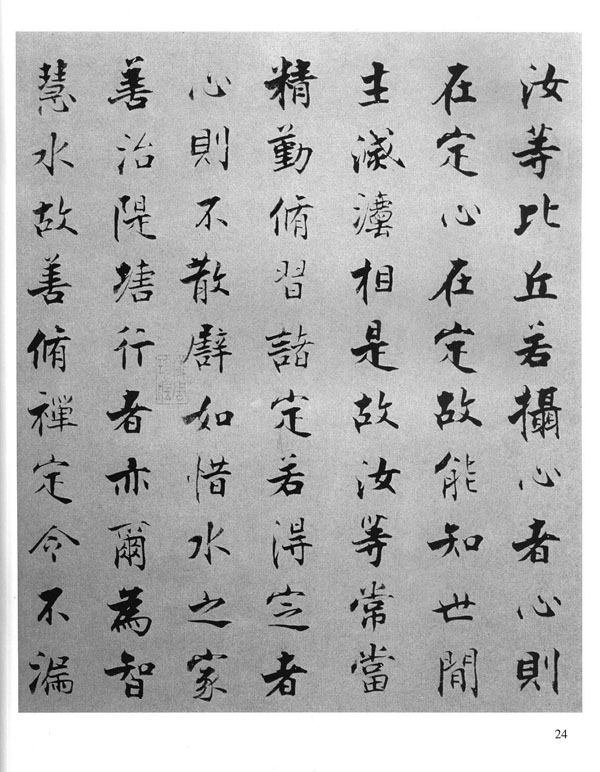 汝等比丘若攝心者心則
在定心在定故能知世間
生滅灋相是故汝等常當
精勤脩習諸定若得定者
心則不散譬如惜水之家
善治隄塘行者亦爾為智
慧水故善脩禪定令不漏
24